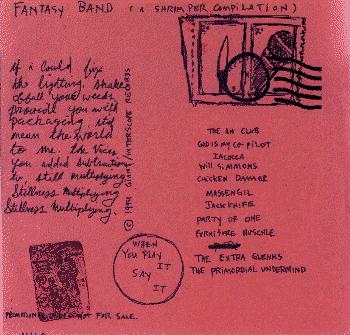 FANTASY BAND (A SHRIMPER COMPILATION)
If I could fix
the lighting, shake
off all your weeds,
provide you with
packaging, it'd
mean the world
to me. the Vices
you added subtractions
to, still multiplying
Stillness Multiplying
Stillness Multiplying.
© 1994 GIANT/INTERSCOPE RECORDS
THE AH CLUB
GOD IS MY CO-PILOT
IACOCCA
WILL SIMMONS
CHICKEN DAMMER
MASSENGIL
JACKKNIFE
PARTY OF ONE
FURNITURE HUSCHLE
THE EXTRA GLENNS
THE PRIMORDIAL UNDERMIND
WHEN
YOU PLAY
IT
SAY
IT
PROMOTIONAL NOT FOR SALE.